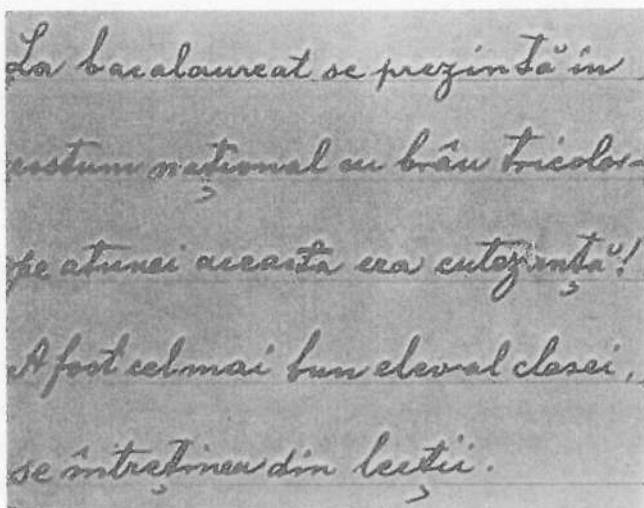 La bacalaureat se prezintă în
costum național cu brâu tricolor-
pe atunci aceasta era cutezanță!
A fost cel mai bun elev al clasei,
se întreținea din lecții.